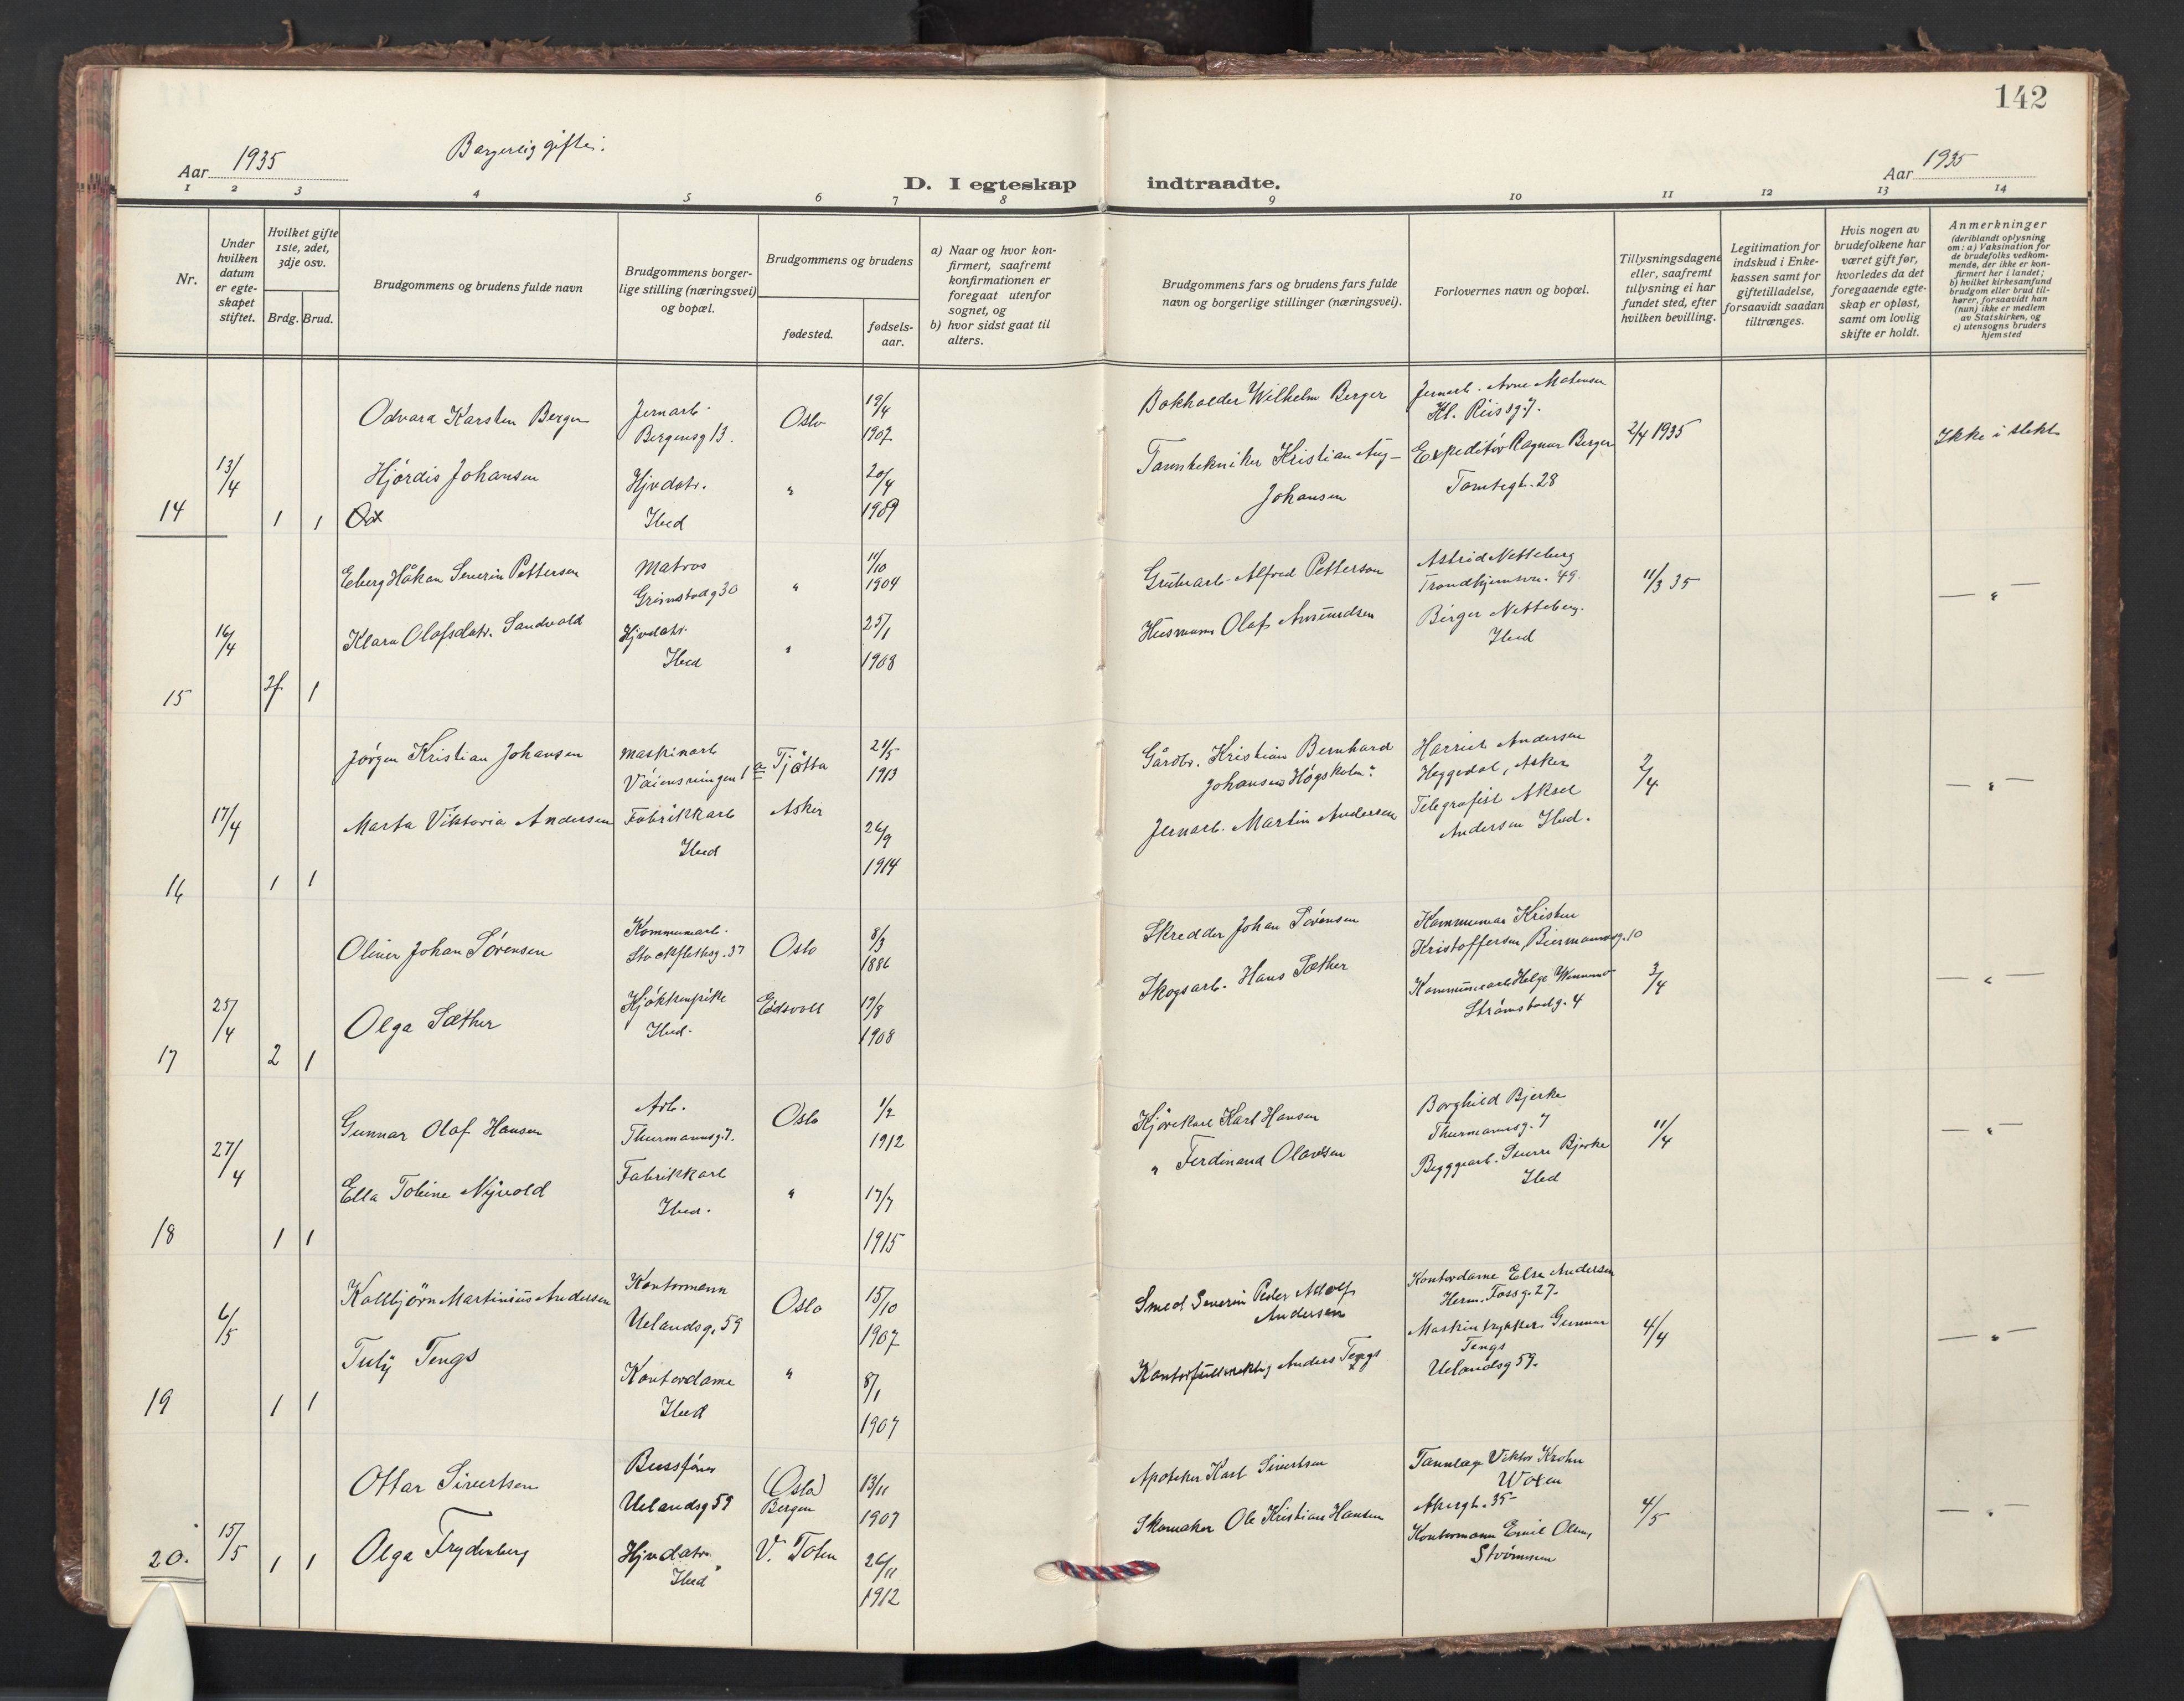 142
Borgerlig gifte.
Aar 1935
Aar 1935
D. I egteskap indtraadte.
1 2 3 4 5 6 7 8 9 10 11 12 13 14
Nr.
Under hvilken datum er egteskapet stiftet.
Hvilket gifte 1ste, 2det, 3dje osv.
Brdg. Brud.
Brudgommens og brudens fulde navn
Brudgommens borgerlige stilling (næringsvei) og bopæl.
Brudgommens og brudens
fødested.
fødselsaar.
a) Naar og hvor konfirmert, saafremt konfirmationen er foregaat utenfor sognet, og
b) hvor sidst gaat til alters.
Brudgommens fars og brudens fars fulde navn og borgerlige stillinger (næringsvei).
Forlovernes navn og bopæl.
Tillysningsdagene eller, saafremt tillysning ei har fundet sted, efter hvilken bevilling.
Legitimation for indskud i Enkekassen samt for giftetilladelse, forsaavidt saadan tiltrænges.
Hvis nogen av brudefolkene har været gift før, hvorledes da det foregaaende egteskap er opløst, samt om lovlig skifte er holdt.
Anmerkninger (deriblandt oplysning om: a) Vaksination for de brudefolks vedkommende, der ikke er konfirmert her i landet; b) hvilket kirkesamfund brudgom eller brud tilhører, forsaavidt han (hun) ikke er medlem av Statskirken, og c) utensogns bruders hjemsted
14 13/4 1 1
Odvard Karsten Berger Jernarb. Bergensg 13. Oslo 19/4 1907
Hjørdis Johansen Hjvdatr. Ibid " 20/4 1909
Bokholder Wilhelm Berger
Tanntekniker Kristian Aug-
Johansen
Jernarb. Arne Matensen
Kl. Riisg. 7.
Expeditør Ragnar Berger
Tomtegt. 28
2/4 1935
Ikke i slekt
15 16/4 2f 1
Eberg Håkan Severin Pettersen Matros Grimstadg 30 " 11/10 1904
Klara Olafsdatr. Sandvold Hjvdatr. Ibid " 25/1 1908
Grubearb. Alfred Petterson
Husmann Olaf Amundsen
Astrid Netteberg
Trondhjemsvn. 49.
Birger Netteberg.
Ibid
11/3 35
— " —
16 17/4 1 1
Jørgen Kristian Johansen Maskinarb Vaiensvingen 1 a Tjøtta 21/5 1913
Marta Viktoria Andersen Fabrikkarb Ibid Asker 26/9 1914
Gårdbr. Kristian Bernhard
Johansen Høgskolm.
Jernarb. Martin Andersen
Harriet Andersen
Heggedal, Asker
Telegrafist Aksel
Andersen Ibid.
2/4
— " —
17 25/4 2 1
Oliver Johan Sørensen Kommunearb. Stockflethsg. 37 Oslo 8/3 1886
Olga Sæther Kjøkkenpike Ibid. Eidsvoll 19/8 1908
Skredder Johan Sørensen
Skogsarb. Hans Sæther
Kristoffersen, Biermannsg. 10
Strømstadg. 4
3/4
— " —
18 27/4 1 1
Gunnar Olaf Hansen Arb. Thurmannsg. 7. Oslo 1/2 1912
Ella Tobine Nyvold Fabrikkarb Ibid. " 17/7 1915
Kjørekar Karl Hansen
" Ferdinand Olavesen
Borghild Bjerke
Thurmannsg. 7
Byggearb. Sverre Bjerke
Ibid
11/4
— " —
19 6/5 1 1
Kolbjørn Martinius Andersen Kontormann Uelandsg. 59 Oslo 15/10 1907
Tuly Tengs Kontordame Ibid " 8/1 1907
Smed Severin Peder Adolf
Andersen
Kontorfullmektig Anders Tengs
Kontordame Else Andersen
Herm. Fossg. 27.
Maskintrykker Gunnar
Tengs
Uelandsg 59.
4/4
— " —
20. 15/5 1 1
Ottar Sivertsen Bussfører Uelandsg 59 (Oslo) Bergen 13/11 1907
Olga Frydenberg Hjvdatr. Ibid V. Toten 26/11 1912
Apoteker Karl Sivertsen
Skomaker Ole Kristian Hansen
Tannlæge Viktor Krohn
Woxen
Akersgt. 35
Kontormann Emil Olsen,
Strømmen
4/5
— " —